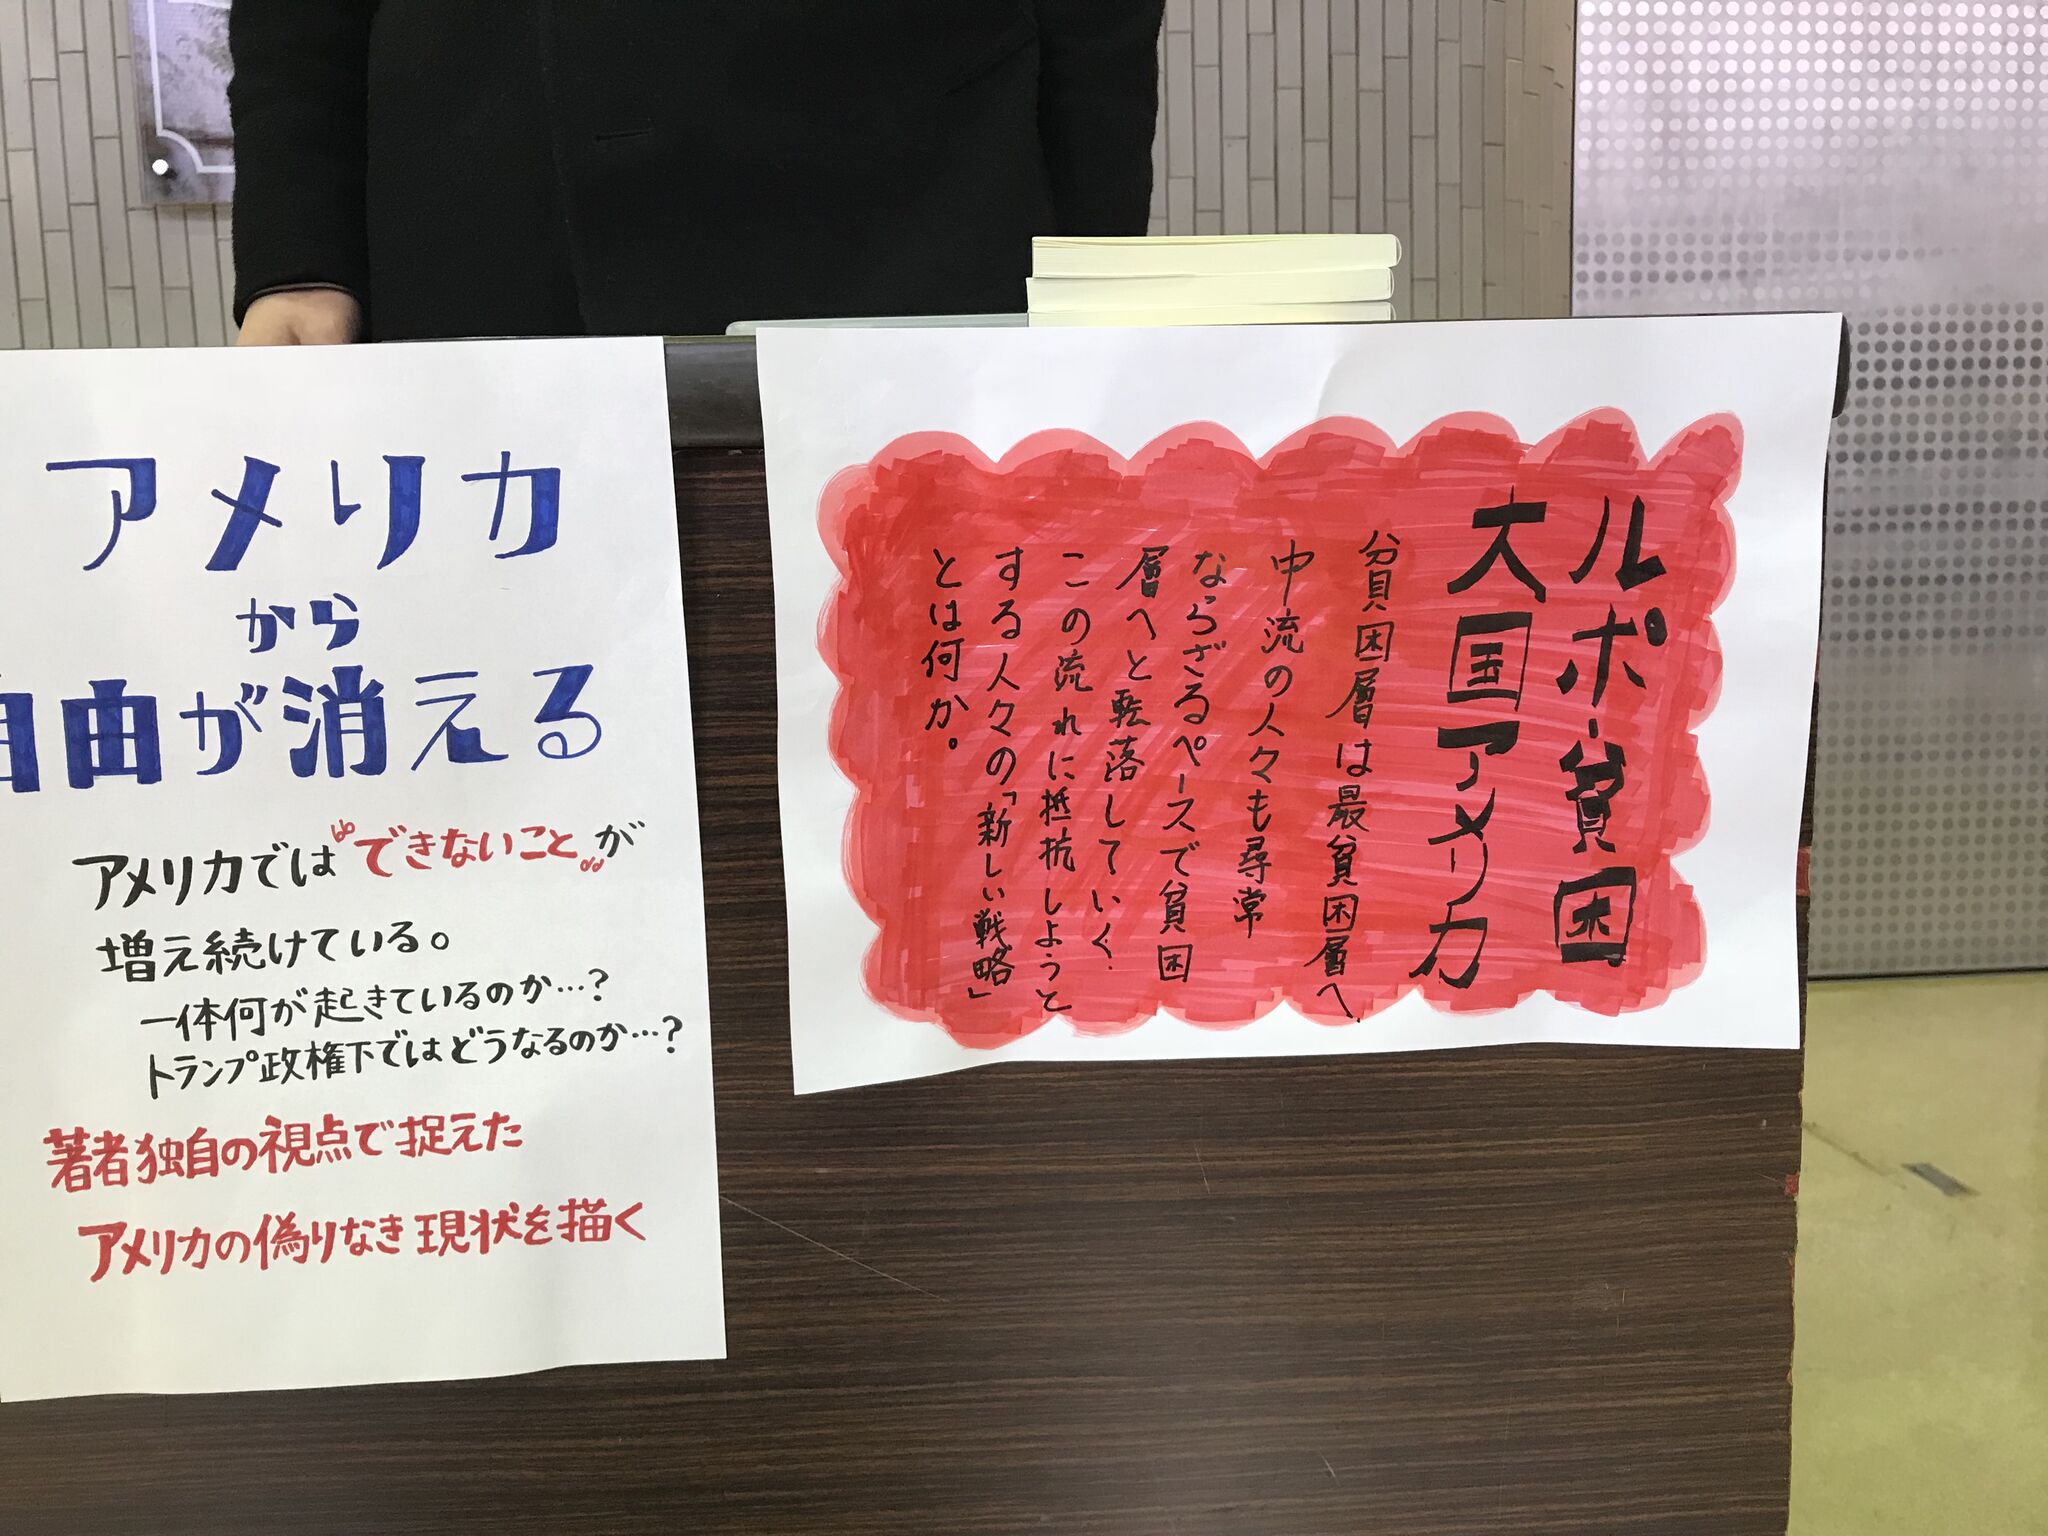 アメリカ
から
自由が消える
アメリカでは“できないこと”が
増え続けている。
一体何が起きているのか…?
トランプ政権下ではどうなるのか…?
著者独自の視点で捉えた
アメリカの偽りなき現状を描く
ルポ-貧困
大国アメリカ
貧困層は最貧困層へ、
中流の人々も尋常
ならざるペースで貧困
層へと転落していく.
この流れに抵抗しようと
する人々の「新しい戦略」
とは何か。